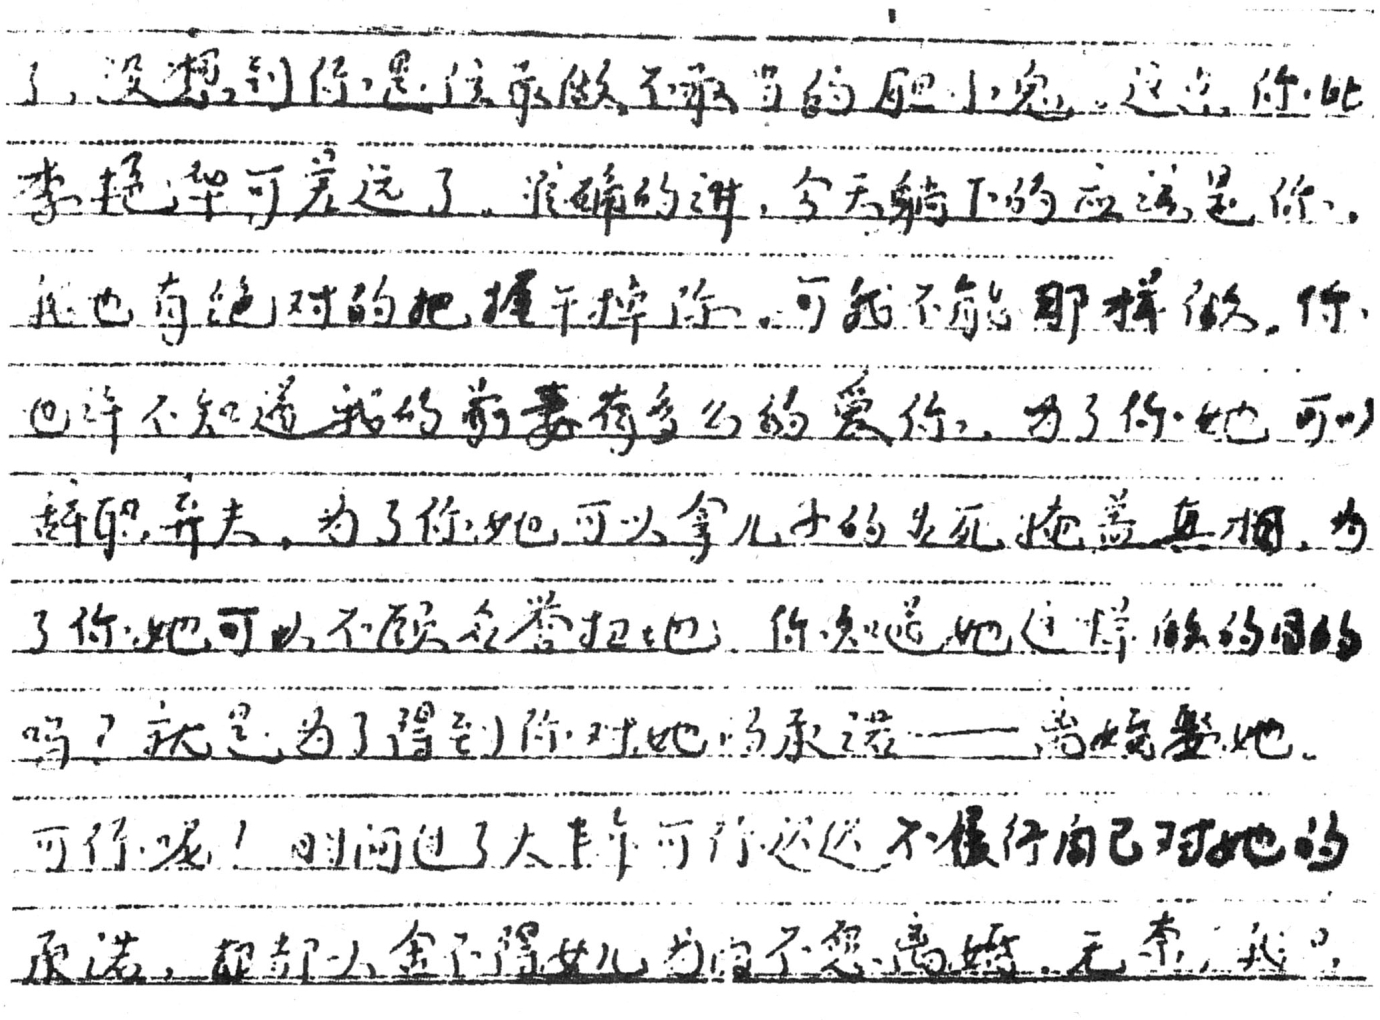 了，没想到你是位敢做不敢当的胆小鬼。这点你比
李艳华可差远了。准确的讲，今天躺下的应该是你。
我也有绝对的把握干掉你。可我不能那样做。你
也许不知道我的前妻有多么的爱你。为了你她可以
辞职弃夫，为了你她可以拿儿子的生死掩盖真相，为
了你她可以不顾名誉扫地，你知道她这样做的目的
吗？就是为了得到你对她的承诺——离婚娶她。
可你呢！时间过了大半年可你迟迟不履行自己对她的
承诺，都以舍不得女儿为由不想离婚。无奈，我